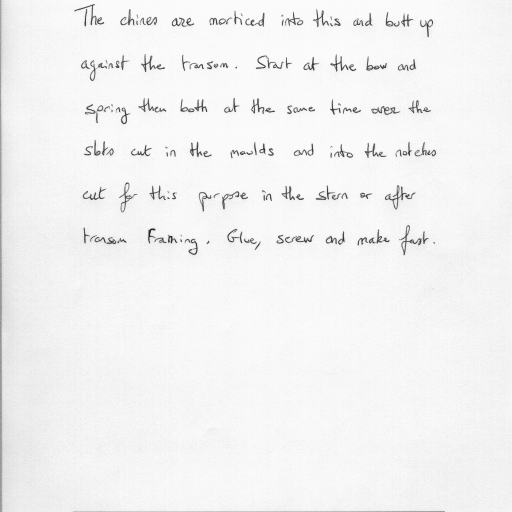 The chines are morticed into this and butt up
against the transom. Start at the bow and
spring them both at the same time over the
slots cut in the moulds and into the notches
cut for this purpose in the stern or after
transom framing. Glue, screw and make fast.